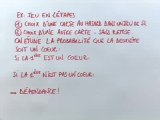 EX: JEU EN 2 ÉTAPES
① CHOIX D'UNE CARTE AU HASARD DANS UN JEU DE 52
② CHOIX D'UNE AUTRE CARTE - SANS REMISE
ON ÉTUDIE LA PROBABILITÉ QUE LA DEUXIÈME
SOIT UN COEUR
SI LA 1ÈRE EST UN COEUR
SI LA 1ÈRE N'EST PAS UN COEUR
→ DÉPENDANCE!